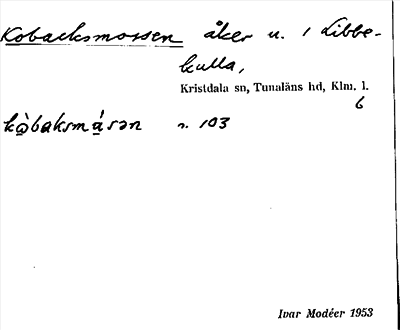 Kobacksmossen åker u. 1 Libbe-
kulla,
Kristdala sn, Tunaläns hd, Klm. l.
6
kò̤baksmá̤sən n. 103
Ivar Modéer 1953